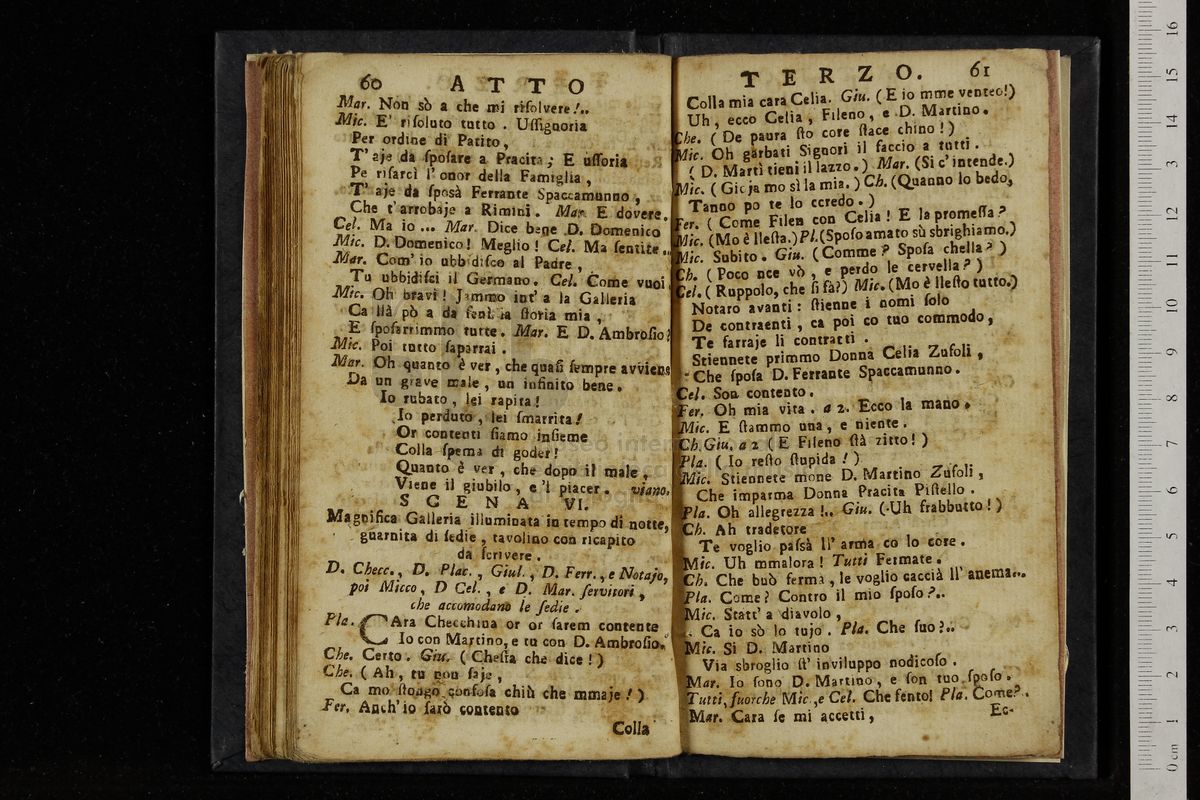 60 ATTO
Mar. Non sò a che mi riſolvere!..
Mic. E' riſoluto tutto. Uſſignoria
Per ordine di Patito,
T' aje da ſpoſare a Pracita; E uſſoria
Pe riſarcì l' onor della Famiglia,
T' aje da ſposà Ferrante Spaccamunno,
Che t'arrobaje a Rimini. Mar. E dovere.
Cel. Ma io ... Mar. Dice bene D. Domenico
Mic. D. Domenico! Meglio! Cel. Ma ſentite..
Mar. Com' io ubbidiſco al Padre,
Tu ubbidiſci il Germano. Cel. Come vuoi.
Mic. Oh bravi! Jammo int' a la Galleria
Ca llà pò a da la ſtoria mia,
E ſpoſarrimmo tutte. Mar. E D. Ambroſio?
Mic. Poi tutto ſaparrai.
Mar. Oh quanto è ver, che quaſi ſempre avviene
Da un grave male, un infinito bene.
Io rubato, lei rapita!
Io perduto, lei ſmarrita!
Or contenti ſiamo inſieme
Colla ſpema di goder!
Quanto è ver, che dopo il male,
Viene il giubilo, e 'l piacer. viano.
SCENA VI.
Magnifica Galleria illuminata in tempo di notte,
guarnita di ſedie, tavolino con ricapito
da ſcrivere.
D. Checc., D. Plac., Giul., D. Ferr., e Notajo,
poi Micco, D Cel., e D. Mar. ſervitori,
che accomodano le ſedie.
Pla. CAra Checchina or or ſarem contente
Io con Martino, e tu con D. Ambroſio.
Che. Certo. Giu. (Cheſta che dice!)
Che. (Ah, tu non ſaje,
Ca mo ſtongo conſoſa chiù che mmaje!)
Fer. Anch' io ſarò contento
Colla
TERZO. 61
Colla mia cara Celia. Giu. (E io mme venteo!)
Uh, ecco Celia, Fileno, e D. Martino.
Che. (De paura ſto core ſtace chino!)
Mic. Oh garbati Signori il faccio a tutti.
(D. Martì tieni il lazzo.) Mar. (Si c' intende.)
Mic. (Gioja mo sì la mia.) Ch. (Quanno lo bedo,
Tanno po te lo ccredo.)
Fer. (Come Filen con Celia! E la promeſſa?
Mic. (Mo è lleſta.) Pl. (Spoſo amato sù sbrighiamo.)
Mic. Subito. Giu. (Comme? Spoſa chella?)
Ch. (Poco nce vò, e perdo le cervella?)
Cel. (Ruppolo, che ſi fa?) Mic. (Mo è lleſto tutto.)
Notaro avanti: ſtienne i nomi ſolo
De contraenti, ca poi co tuo commodo,
Te farraje li contratti.
Stiennete primmo Donna Celia Zufoli,
Che ſpoſa D. Ferrante Spaccamunno.
Cel. Son contento.
Fer. Oh mia vita. a 2. Ecco la mano.
Mic. E ſtammo una, e niente.
Ch. Giu. a 2 (E Fileno ſtà zitto!)
Pla. (Io reſto ſtupida!)
Mic. Stiennete mone D. Martino Zufoli,
Che imparma Donna Pracita Piſtello.
Pla. Oh allegrezza!.. Giu. (Uh frabbutto!)
Ch. Ah tradetore
Te voglio paſsà ll' arma co lo core.
Mic. Uh mmalora! Tutti Fermate.
Ch. Che buò ferma, le voglio caccià ll' anema...
Pla. Come? Contro il mio ſpoſo?..
Mic. Statt' a diavolo,
Ca io sò lo tujo. Pla. Che ſuo?..
Mic. Si D. Martino
Via sbroglio ſt' inviluppo nodicoſo.
Mar. Io ſono D. Martino, e ſon tuo ſpoſo.
Tutti, fuorche Mic., e Cel. Che ſento! Pla. Come?.
Mar. Cara ſe mi accetti,
Ec-